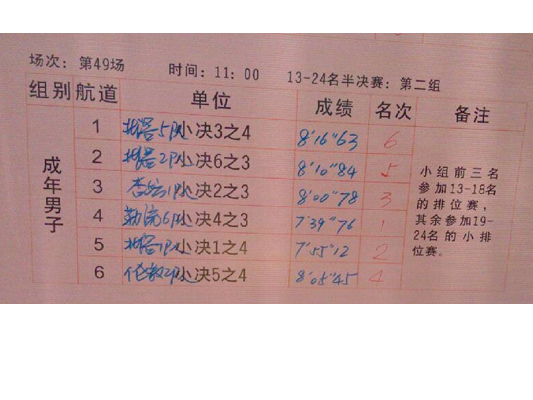 场次：第49场 时间：11：00 13-24名半决赛：第二组
组别 航道 单位 成绩 名次 备注
成年男子
1 5队小决3之4 8'16"63 6
2 2队小决6之3 8'10"84 5
3 1队小决2之3 8'00"78 3
4 6队小决4之3 7'39"76 1
5 小决1之4 7'55"12 2
6 伦教2队小决5之4 8'05"45 4
小组前三名
参加13-18名
的排位赛，
其余参加19-
24名的小排
位赛。